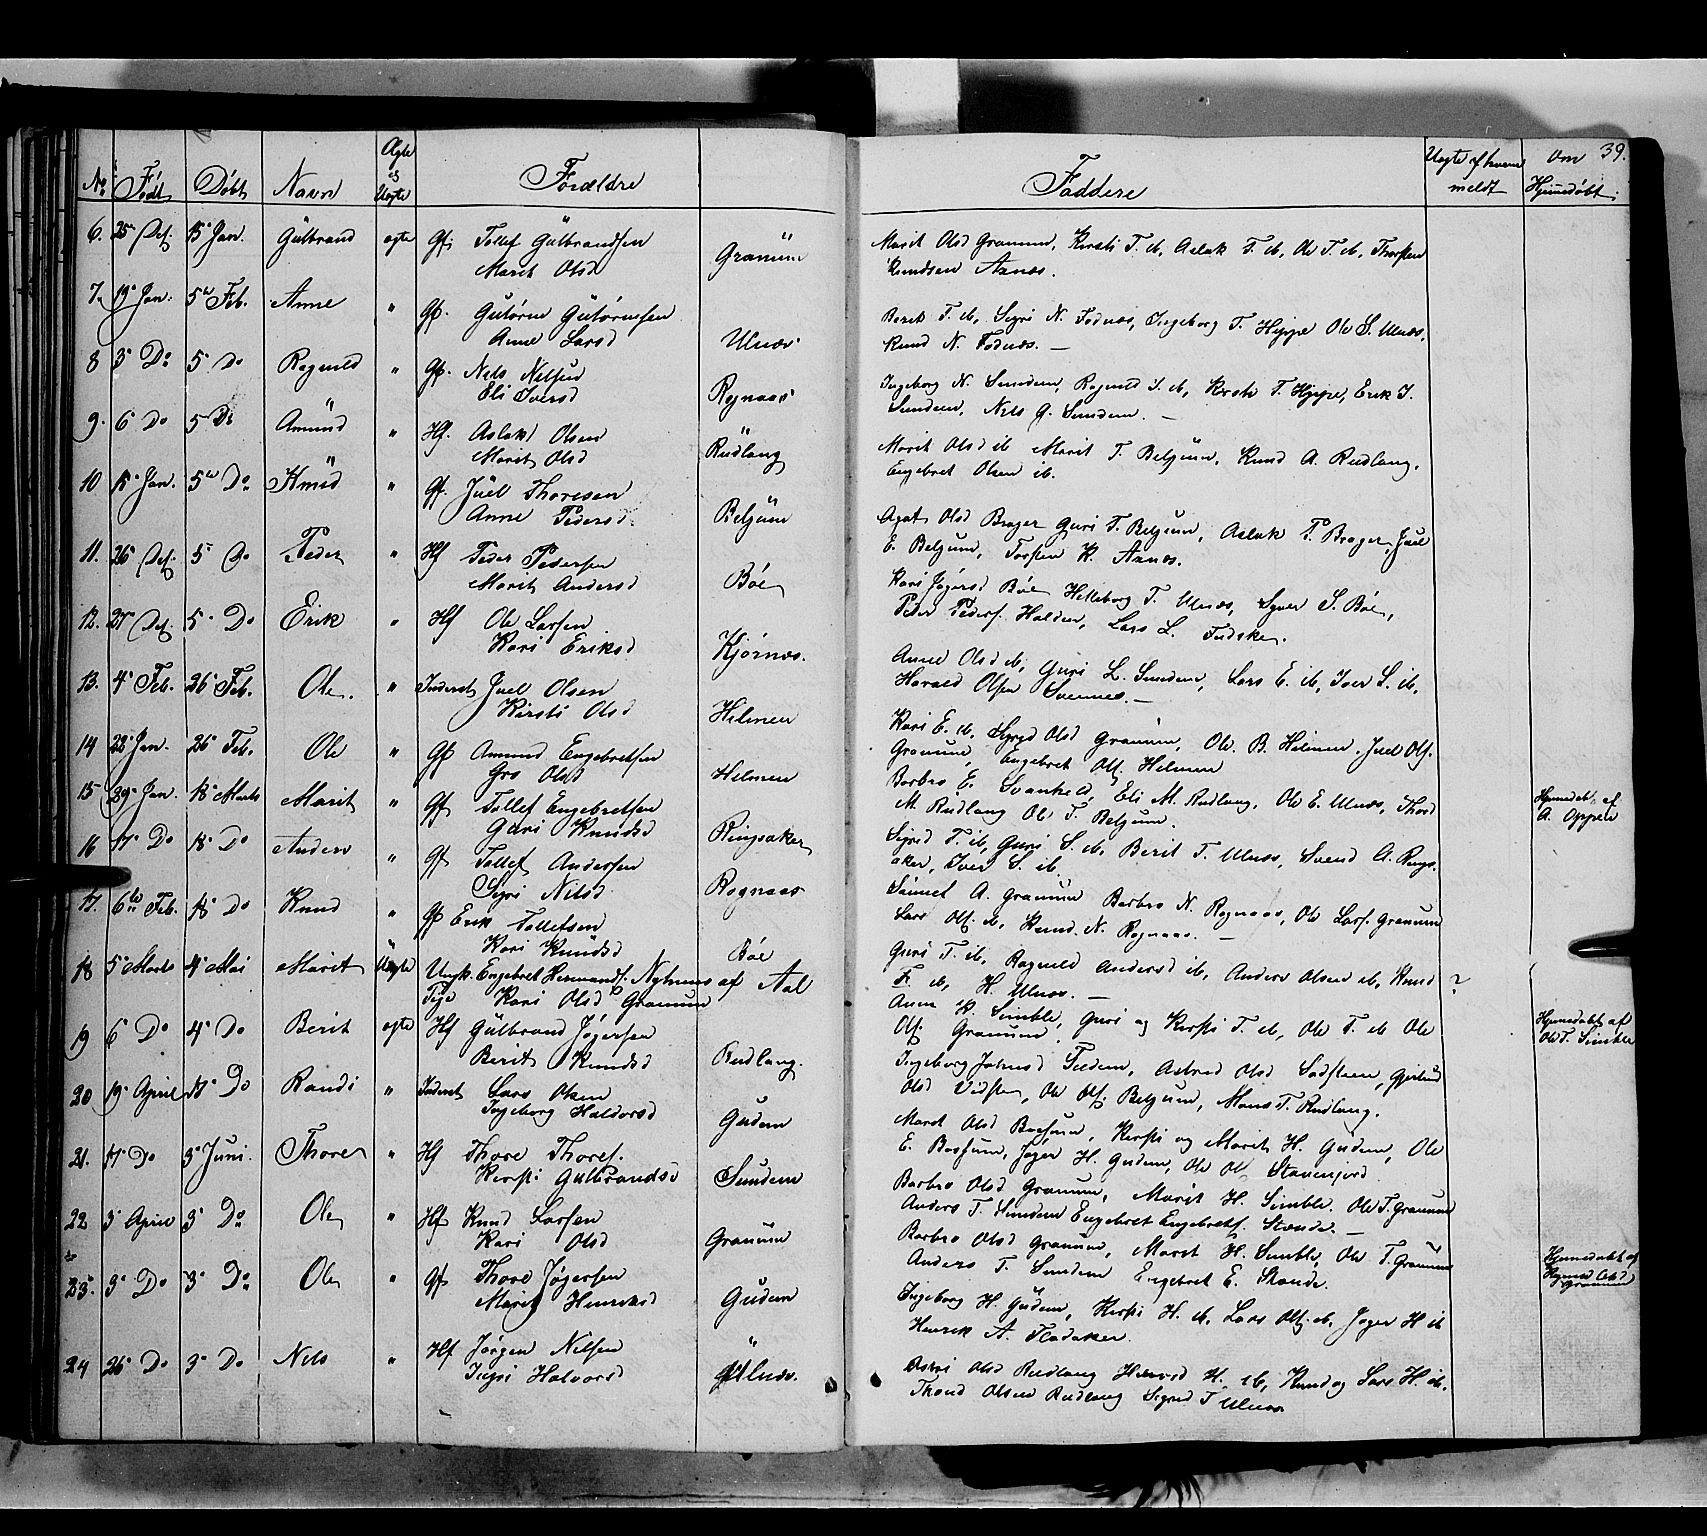 39.
No Født Døbt Navn Ægte el Uægte Forældre Faddere Uægte af hvem meldt Om Hjemmedøbt
6. 25 Des. 15 Jan. Gulbrand ægte Gf. Tollef Gulbrandsen Granum Marit Olsd Granum, Kirsti T. ib, Aslak T. ib, Ole T. ib, Thorsten
Marit Olsd Knudsen Aanæs.
7. 19 Jan. 5te Feb. Anne " Gf. Gutorm Gutormsen Ulnæs Berit T. ib, Sigri N. Fodnæs, Ingeborg T. Hippe Ole S. Ulnæs,
Anne Larsd Knud N. Fodnæs. —
8 3 Do 5 Do Ragnild " Gf. Nels Nelsen Rognaas Ingeborg N. Sundem, Ragnild S. ib, Kirsti T. Hippe, Erik I.
Eli Iversd Sundem, Nels G. Sundem. —
9. 6 Do 5 Do Amund " Hf. Aslak Olsen Rudlang Marit Olsd ib Marit T. Belgum, Knud A. Rudlang,
Marit Olsd Engebret Olsen ib.
10 15 Jan. 5te Do Knud " Gf. Juel Thoresen Belgum Agat Olsd Brager Guri T. Belgum, Aslak P. Brager, Juel
Anne Pedersd. E. Belgum, Torsten K. Aanæs.
11. 26 Des. 5 Do Peder " Hf Peder Pedersen Bøe Kari Jøgersd Bøe Helleborg T. Ulnæs, Syver S. Bøe,
Marit Andersd Peder Peders. Halden, Lars L. Fudske.
12. 27 Des. 5 Do Erik " Hf Ole Larsen Kjørnæs. Anne Olsd ib, Guri L. Sundem, Lars E. ib, Iver S. ib,
Kari Eriksd Harald Olsen Svennes. —
13. 4 Feb. 26 Feb. Ole. " Inderst Juel Olsen Hilmen Kari E. ib, Sigrid Olsd Granum, Ole B. Hilmen, Juel Ols.
Kirsti Olsd Granum, Engebret Ols. Helmen
14 22 Jan. 26 Feb. Ole " Gf Amund Engebretsen Helmen Barbro E. Svanheld, Eli M. Rudlang, Ole E. Ulnæs, Thord
Gro Olsd M. Rudlang Ole T. Belgum.
15 29 Jan. 18 Marts Marit " Gf Tollef Engebretsen Ringsaker Sigrid T. ib, Guri S. ib, Berit T. Ulnæs, Svend A. Rings- Hjemmedøbt af A. Oppen
Guri Knudsd aker, Iver S. ib.
16 17 Do 18 Do Anders " Gf Tollef Andersen Rognaas Sunnet A. Granum Barbro N. Rognaas, Ole Lars. Granum
Sigri Nilsd Lars Ols. ib, Knud N. Rognaas. —
17. 6te Feb. 18 Do Knud " Gf Erik Tollefsen Bøe Guri T. ib, Ragnild Andersd ib, Anders Olsen ib, Knud
Kari Knudsd T. ib, H. Ulnæs. —
18 5 Marts 4 Mai Marit Uægte Ungk. Engebret Hermands. Nyhuus af Aal Anne K. Simble, Guri og Kirsti T. ib, Ole T. ib Ole ?
Pige Kari Olsd Granum Ols. Granum
19 6 Do 4 Do Berit ægte Hf Gulbrand Jøgersen Rudlang. Ingeborg Johnsd Tildem, Astrid Olsd Sadsteen, Gjertrud Hjemmedøbt af Ole T. Simble
Berit Knudsd Olsd Vidsten, Ole Ols. Belgum, Mons T. Rudlang.
20 19 April 17 Do Randi " Inderst Lars Olsen Gudem Marit Olsd Bossum, Kirsti og Marit H. Gudem, Ole
Ingeborg Haldorsd E. Bossum, Jøger H. Gudem, Ole Ols Stavenjord.
21. 17 Do 3 Juni. Thore " Hf Thore Thores. Sundem Barbro Olsd Granum, Marit H. Simble. Ole T. Granum
Kirsti Gulbrandsd Anders T. Sundem Engebret Engebrets. Strande. —
22 3 April 3 Do Ole " Hf Knud Larsen Granum Barbro Olsd Granum, Marit H. Simble, Ole T. Granum
Kari Olsd Anders T. Sundem Engebret E. Stande.
23. 3 Do 3 Do Ole " Gf Thore Jøgersen Gudem Ingeborg H. Gudem, Kirsti H. ib, Lars Ols. ib, Jøger H ib Hjemmedøbt af Olsd Granum
Marit Henriksd Henrik A. Fladaker.
24 26 Do 3 Do Nels " Hf Jørgen Nilsen Ulnæs. Astri Olsd Rudlang H. ib, Knud og Lars H. ib.
Ingri Halvorsd Thond Olsen Rudlang Sigrid T. Ulnæs